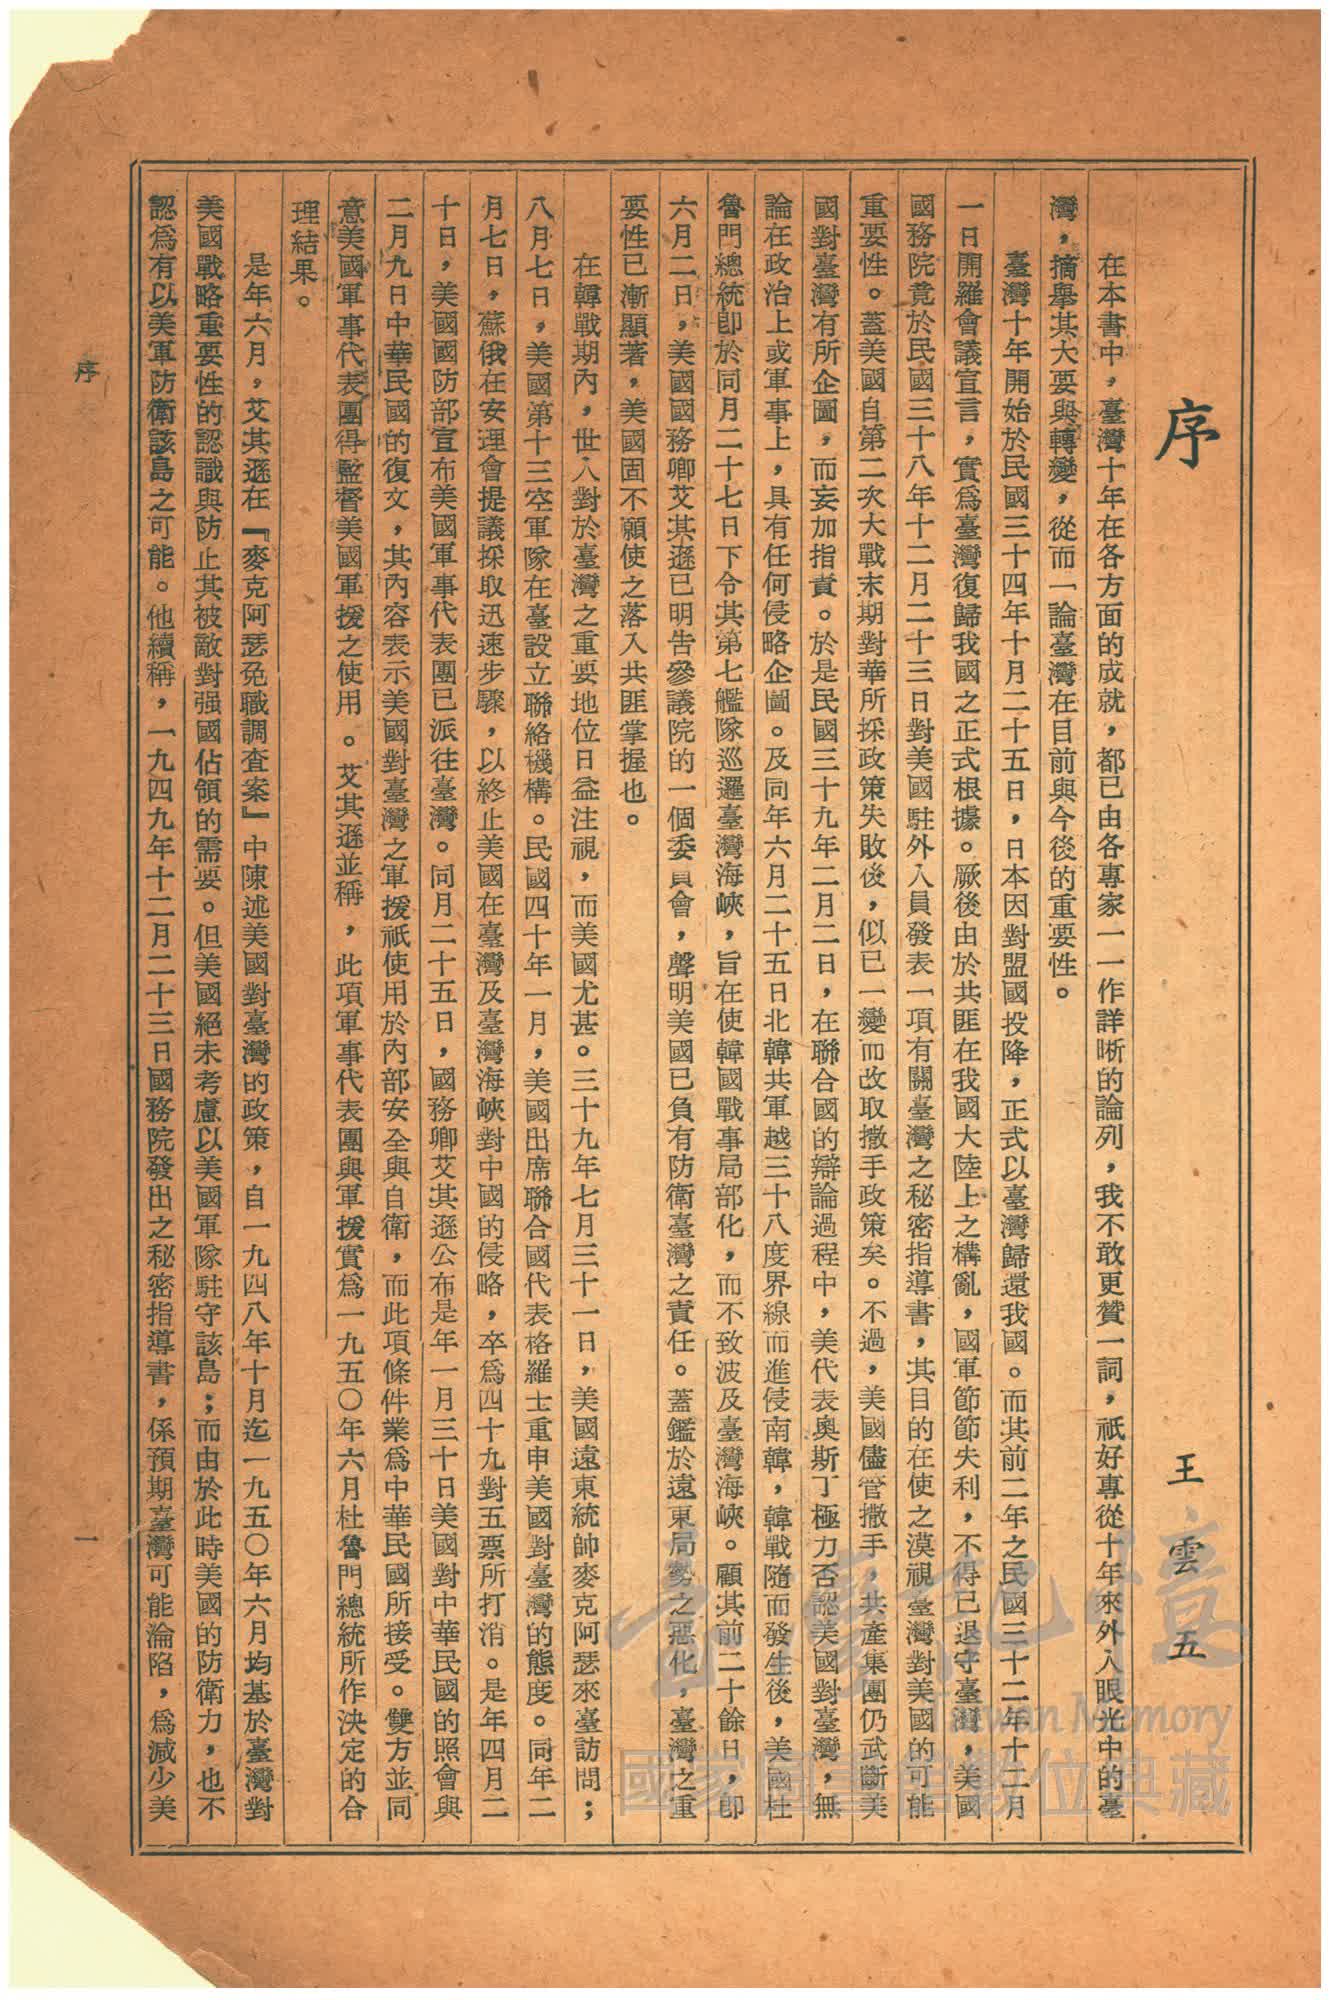 序
王雲五
在本書中，臺灣十年在各方面的成就，都已由各專家一一作詳晰的論列，我不敢更贊一詞，祇好專從十年來外人眼光中的臺
灣，摘舉其大要與轉變，從而一論臺灣在目前與今後的重要性。
臺灣十年開始於民國三十四年十月二十五日，日本因對盟國投降，正式以臺灣歸還我國。而其前二年之民國三十二年十二月
一日開羅會議宣言，實爲臺灣復歸我國之正式根據。厥後由於共匪在我國大陸上之構亂，國軍節節失利，不得已退守臺灣，美國
國務院竟於民國三十八年十二月二十三日對美國駐外人員發表一項有關臺灣之秘密指導書，其目的在使之漠視臺灣對美國的可能
重要性。蓋美國自第二次大戰末期對華所採政策失敗後，似已一變而改取撒手政策矣。不過，美國儘管撒手，共產集團仍武斷美
國對臺灣有所企圖，而妄加指責。於是民國三十九年二月二日，在聯合國的辯論過程中，美代表奧斯丁極力否認美國對臺灣，無
論在政治上或軍事上，具有任何侵略企圖。及同年六月二十五日北韓共軍越三十八度界線而進侵南韓，韓戰隨而發生後，美國杜
魯門總統卽於同月二十七日下令其第七艦隊巡邏臺灣海峽，旨在使韓國戰事局部化，而不致波及臺灣海峽。顧其前二十餘日，卽
六月二日，美國國務卿艾其遜已明告參議院的一個委員會，聲明美國已負有防衛臺灣之責任。蓋鑑於遠東局勢之惡化，臺灣之重
要性已漸顯著，美國固不願使之落入共匪掌握也。
在韓戰期內，世人對於臺灣之重要地位日益注視，而美國尤甚。三十九年七月三十一日，美國遠東統帥麥克阿瑟來臺訪問；
八月七日，美國第十三空軍隊在臺設立聯絡機構。民國四十年一月，美國出席聯合國代表格羅士重申美國對臺灣的態度。同年二
月七日，蘇俄在安理會提議採取迅速步驟，以終止美國在臺灣及臺灣海峽對中國的侵略，卒爲四十九對五票所打消。是年四月二
十日，美國國防部宣布美國軍事代表團已派往臺灣。同月二十五日，國務卿艾其遜公布是年一月三十日美國對中華民國的照會與
二月九日中華民國的復文，其內容表示美國對臺灣之軍援祇使用於內部安全與自衛，而此項條件業爲中華民國所接受。雙方並同
意美國軍事代表團得監督美國軍援之使用。艾其遜並稱，此項軍事代表團與軍援實爲一九五〇年六月杜魯門總統所作決定的合
理結果。
是年六月，艾其遜在『麥克阿瑟免職調查案』中陳述美國對臺灣的政策，自一九四八年十月迄一九五〇年六月均基於臺灣對
美國戰略重要性的認識與防止其被敵對强國佔領的需要。但美國絕未考慮以美國軍隊駐守該島；而由於此時美國的防衛力，也不
認爲有以美軍防衛該島之可能。他續稱，一九四九年十二月二十三日國務院發出之秘密指導書，係預期臺灣可能淪陷，爲減少美
序
一
臺灣記憶
Taiwan Memory
國家圖書館數位典藏